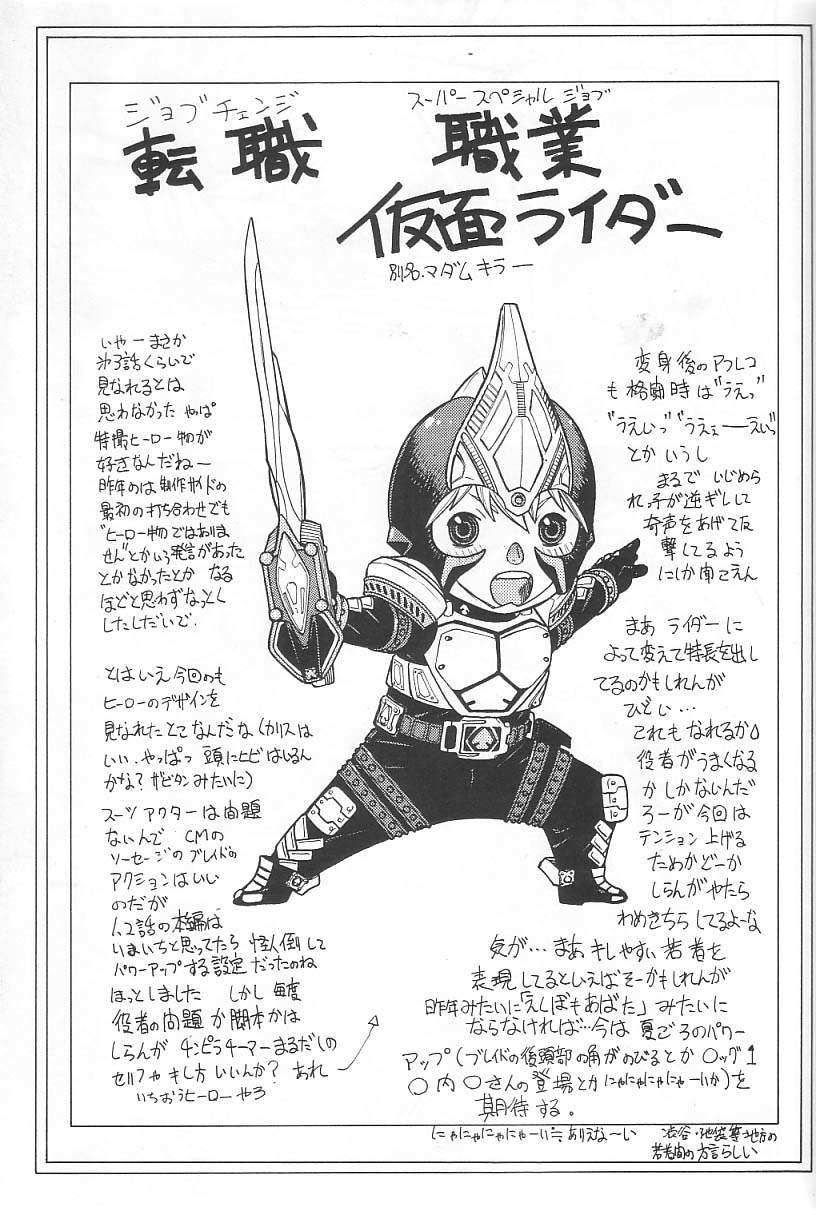 ジョブチェンジ
転職
スーパー スペシャル ジョブ
職業
仮面ライダー
別名.マダムキラー
いやーまさか
第3話くらいで
見なれるとは
思わなかった やっぱ
特撮ヒーロー物が
好きなんだねー
昨年のは制作サイドの
最初の打ち合わせでも
"ヒーロー物ではありま
せん"とかいう発言があった
とかなかったとか なる
ほどと思わずなっとく
したしだいで.
とはいえ今回のも
ヒーローのデザインを
見なれたとてなんだな(カリスは
いい.やっぱっ 頭にヒビはいるん
かな?ザビタンみたいに)
スーツアクターは問題
ないんで CMの
ソーセージのブレイドの
アクションはいい
のだが
1.2話の本編は
いまいちと思ってたら 怪人倒して
パワーアップする設定だったのね
ほっとしました しかし毎度
役者の問題か脚本かは
しらんが チンピラチーマーまるだしの
セリフやキレ方いいんか? あれ
いちおうヒーローやろ
変身後のアフレコ
も格闘時は"うえっ"
"うえいっ""うえェーえいっ"
とかいうし
まるでいじめら
れっ子が逆ギレして
奇声をあげて反
撃してるよう
にしか聞こえん
まあ ライダーに
よって変えて特長を出し
てるのかもしれんが
ひどい...
これもなれるか
役者がうまくなる
かしかないんだ
ろーが今回は
テンション上げる
ためかどーか
しらんがやたら
わめきちらしてるよーな
気が...まあキレやすい若者を
表現してるといえばそーかもしれんが
昨年みたいに「えくぼもあばた」みたいに
ならなければ...今は夏ごろのパワー
アップ(ブレイドの後頭部の角がのびるとか〇ッグ1
〇内〇さんの登場とかにゃにゃにゃにゃーいか)を
期待する。
にゃにゃにゃにゃーい≒ありえな〜い
渋谷・池袋等地方の
若者間の方言らしい